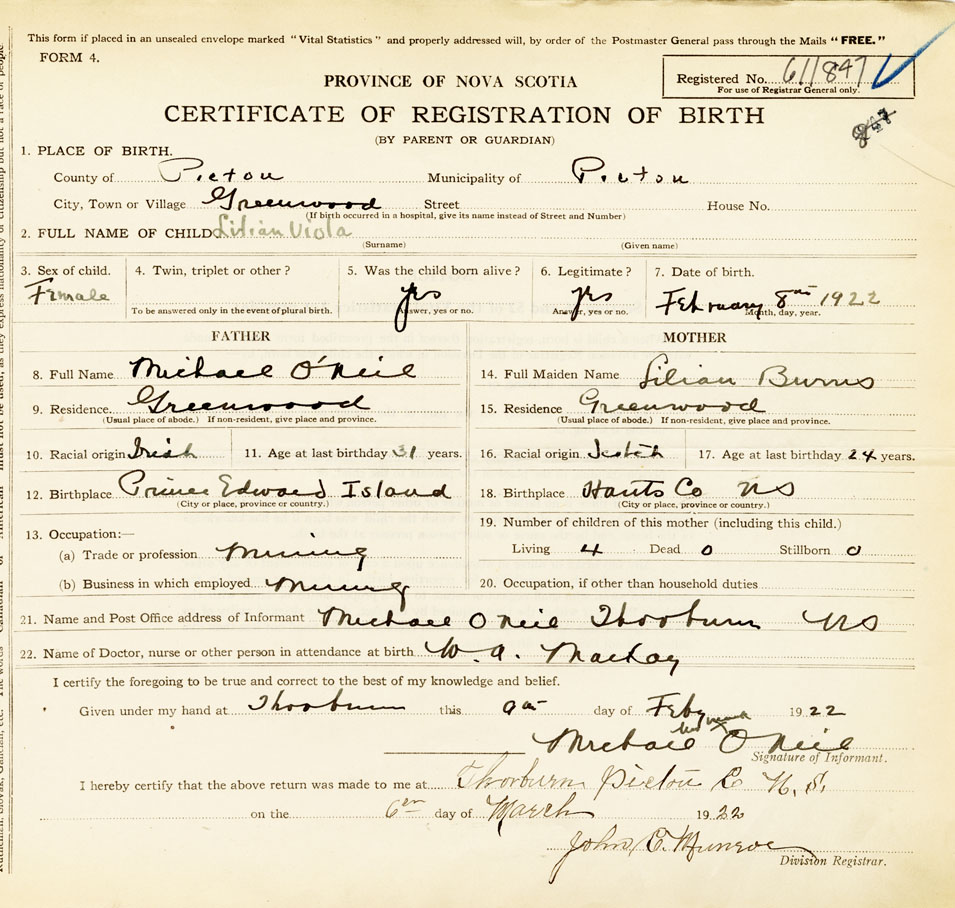 This form if placed in an unsealed envelope marked "Vital Statistics" and properly addressed will, by order of the Postmaster General pass through the Mails "FREE."
FORM 4.
Registered No. 611847
For use of Registrar General only.
PROVINCE OF NOVA SCOTIA
CERTIFICATE OF REGISTRATION OF BIRTH
(BY PARENT OR GUARDIAN)
1. PLACE OF BIRTH.
County of Pictou Municipality of Pictou
City, Town or Village Greenwood Street House No.
(If birth occurred in a hospital, give its name instead of Street and Number)
2. FULL NAME OF CHILD Lilian Viola
(Surname) (Given name)
3. Sex of child. 4. Twin, triplet or other? 5. Was the child born alive? 6. Legitimate? 7. Date of birth.
Female yes yes February 8th 1922
To be answered only in the event of plural birth. Answer, yes or no. Answer, yes or no. Month, day, year.
FATHER MOTHER
8. Full Name Michael O'Neil 14. Full Maiden Name Lilian Burns
9. Residence. Greenwood 15. Residence Greenwood
(Usual place of abode.) If non-resident, give place and province. (Usual place of abode.) If non-resident, give place and province.
10. Racial origin Irish 11. Age at last birthday 31 years. 16. Racial origin Scotch 17. Age at last birthday 24 years.
12. Birthplace Prince Edward Island 18. Birthplace Hants Co NS
(City or place, province or country.) (City or place, province or country.)
13. Occupation:— 19. Number of children of this mother (including this child.)
(a) Trade or profession Mining Living 4 Dead 0 Stillborn 0
(b) Business in which employed Mining 20. Occupation, if other than household duties
21. Name and Post Office address of Informant Michael O Neil Thorburn NS
22. Name of Doctor, nurse or other person in attendance at birth W. A. MacKay
I certify the foregoing to be true and correct to the best of my knowledge and belief.
Given under my hand at Thorburn this 9th day of Feby 1922
Michael O Neil
Signature of Informant.
I hereby certify that the above return was made to me at Thorburn Pictou Co N.S.
on the 6th day of March 1922
John C. Munroe
Division Registrar.